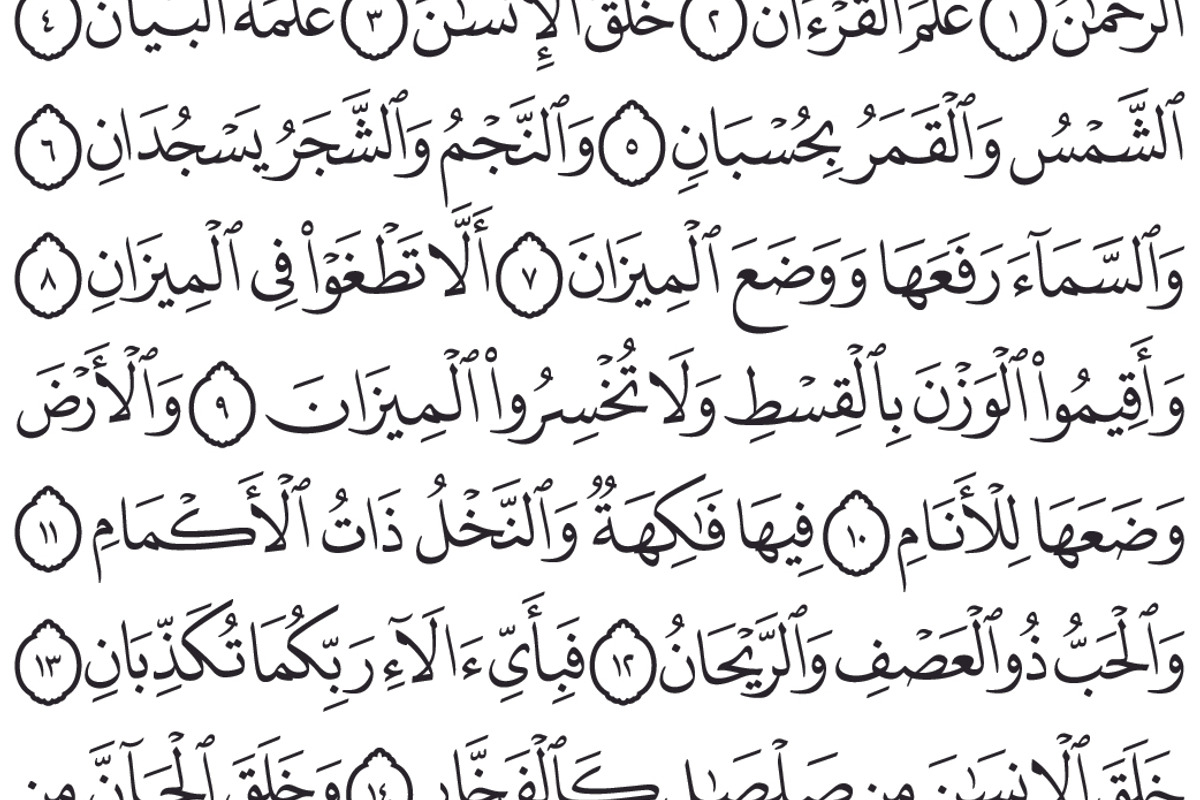 ٱلرَّحْمَـٰنُ ١ عَلَّمَ ٱلْقُرْءَانَ ٢ خَلَقَ ٱلْإِنسَـٰنَ ٣ عَلَّمَهُ ٱلْبَيَانَ ٤
ٱلشَّمْسُ وَٱلْقَمَرُ بِحُسْبَانٍ ٥ وَٱلنَّجْمُ وَٱلشَّجَرُ يَسْجُدَانِ ٦
وَٱلسَّمَآءَ رَفَعَهَا وَوَضَعَ ٱلْمِيزَانَ ٧ أَلَّا تَطْغَوْا۟ فِى ٱلْمِيزَانِ ٨
وَأَقِيمُوا۟ ٱلْوَزْنَ بِٱلْقِسْطِ وَلَا تُخْسِرُوا۟ ٱلْمِيزَانَ ٩ وَٱلْأَرْضَ
وَضَعَهَا لِلْأَنَامِ ١٠ فِيهَا فَـٰكِهَةٌ وَٱلنَّخْلُ ذَاتُ ٱلْأَكْمَامِ ١١
وَٱلْحَبُّ ذُو ٱلْعَصْفِ وَٱلرَّيْحَانُ ١٢ فَبِأَىِّ ءَالَآءِ رَبِّكُمَا تُكَذِّبَانِ ١٣
خَلَقَ ٱلْإِنسَـٰنَ مِن صَلْصَـٰلٍ كَٱلْفَخَّارِ ١٤ وَخَلَقَ ٱلْجَآنَّ مِن